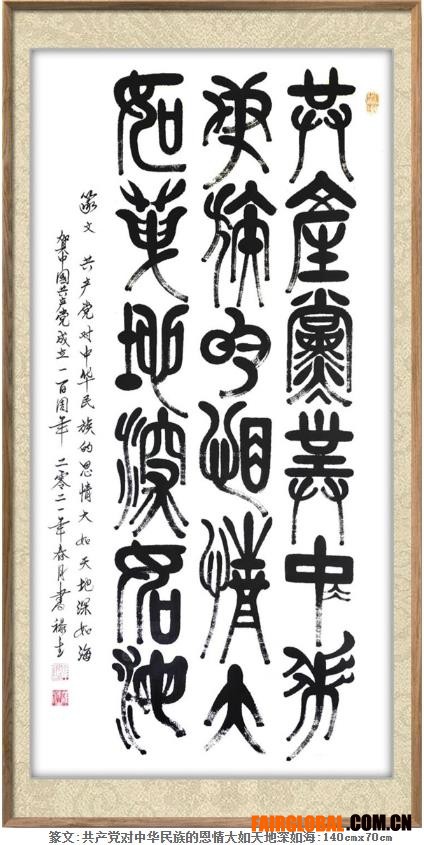 共產黨對中华
民族的恩情大
如天地深如海
篆文 共产党对中华民族的恩情大如天地深如海
贺中國共产党成立一百周年 二零二一年春月書
FAIRGLOBAL.COM.CN
篆文:共产党对中华民族的恩情大如天地深如海:140cmx70cm